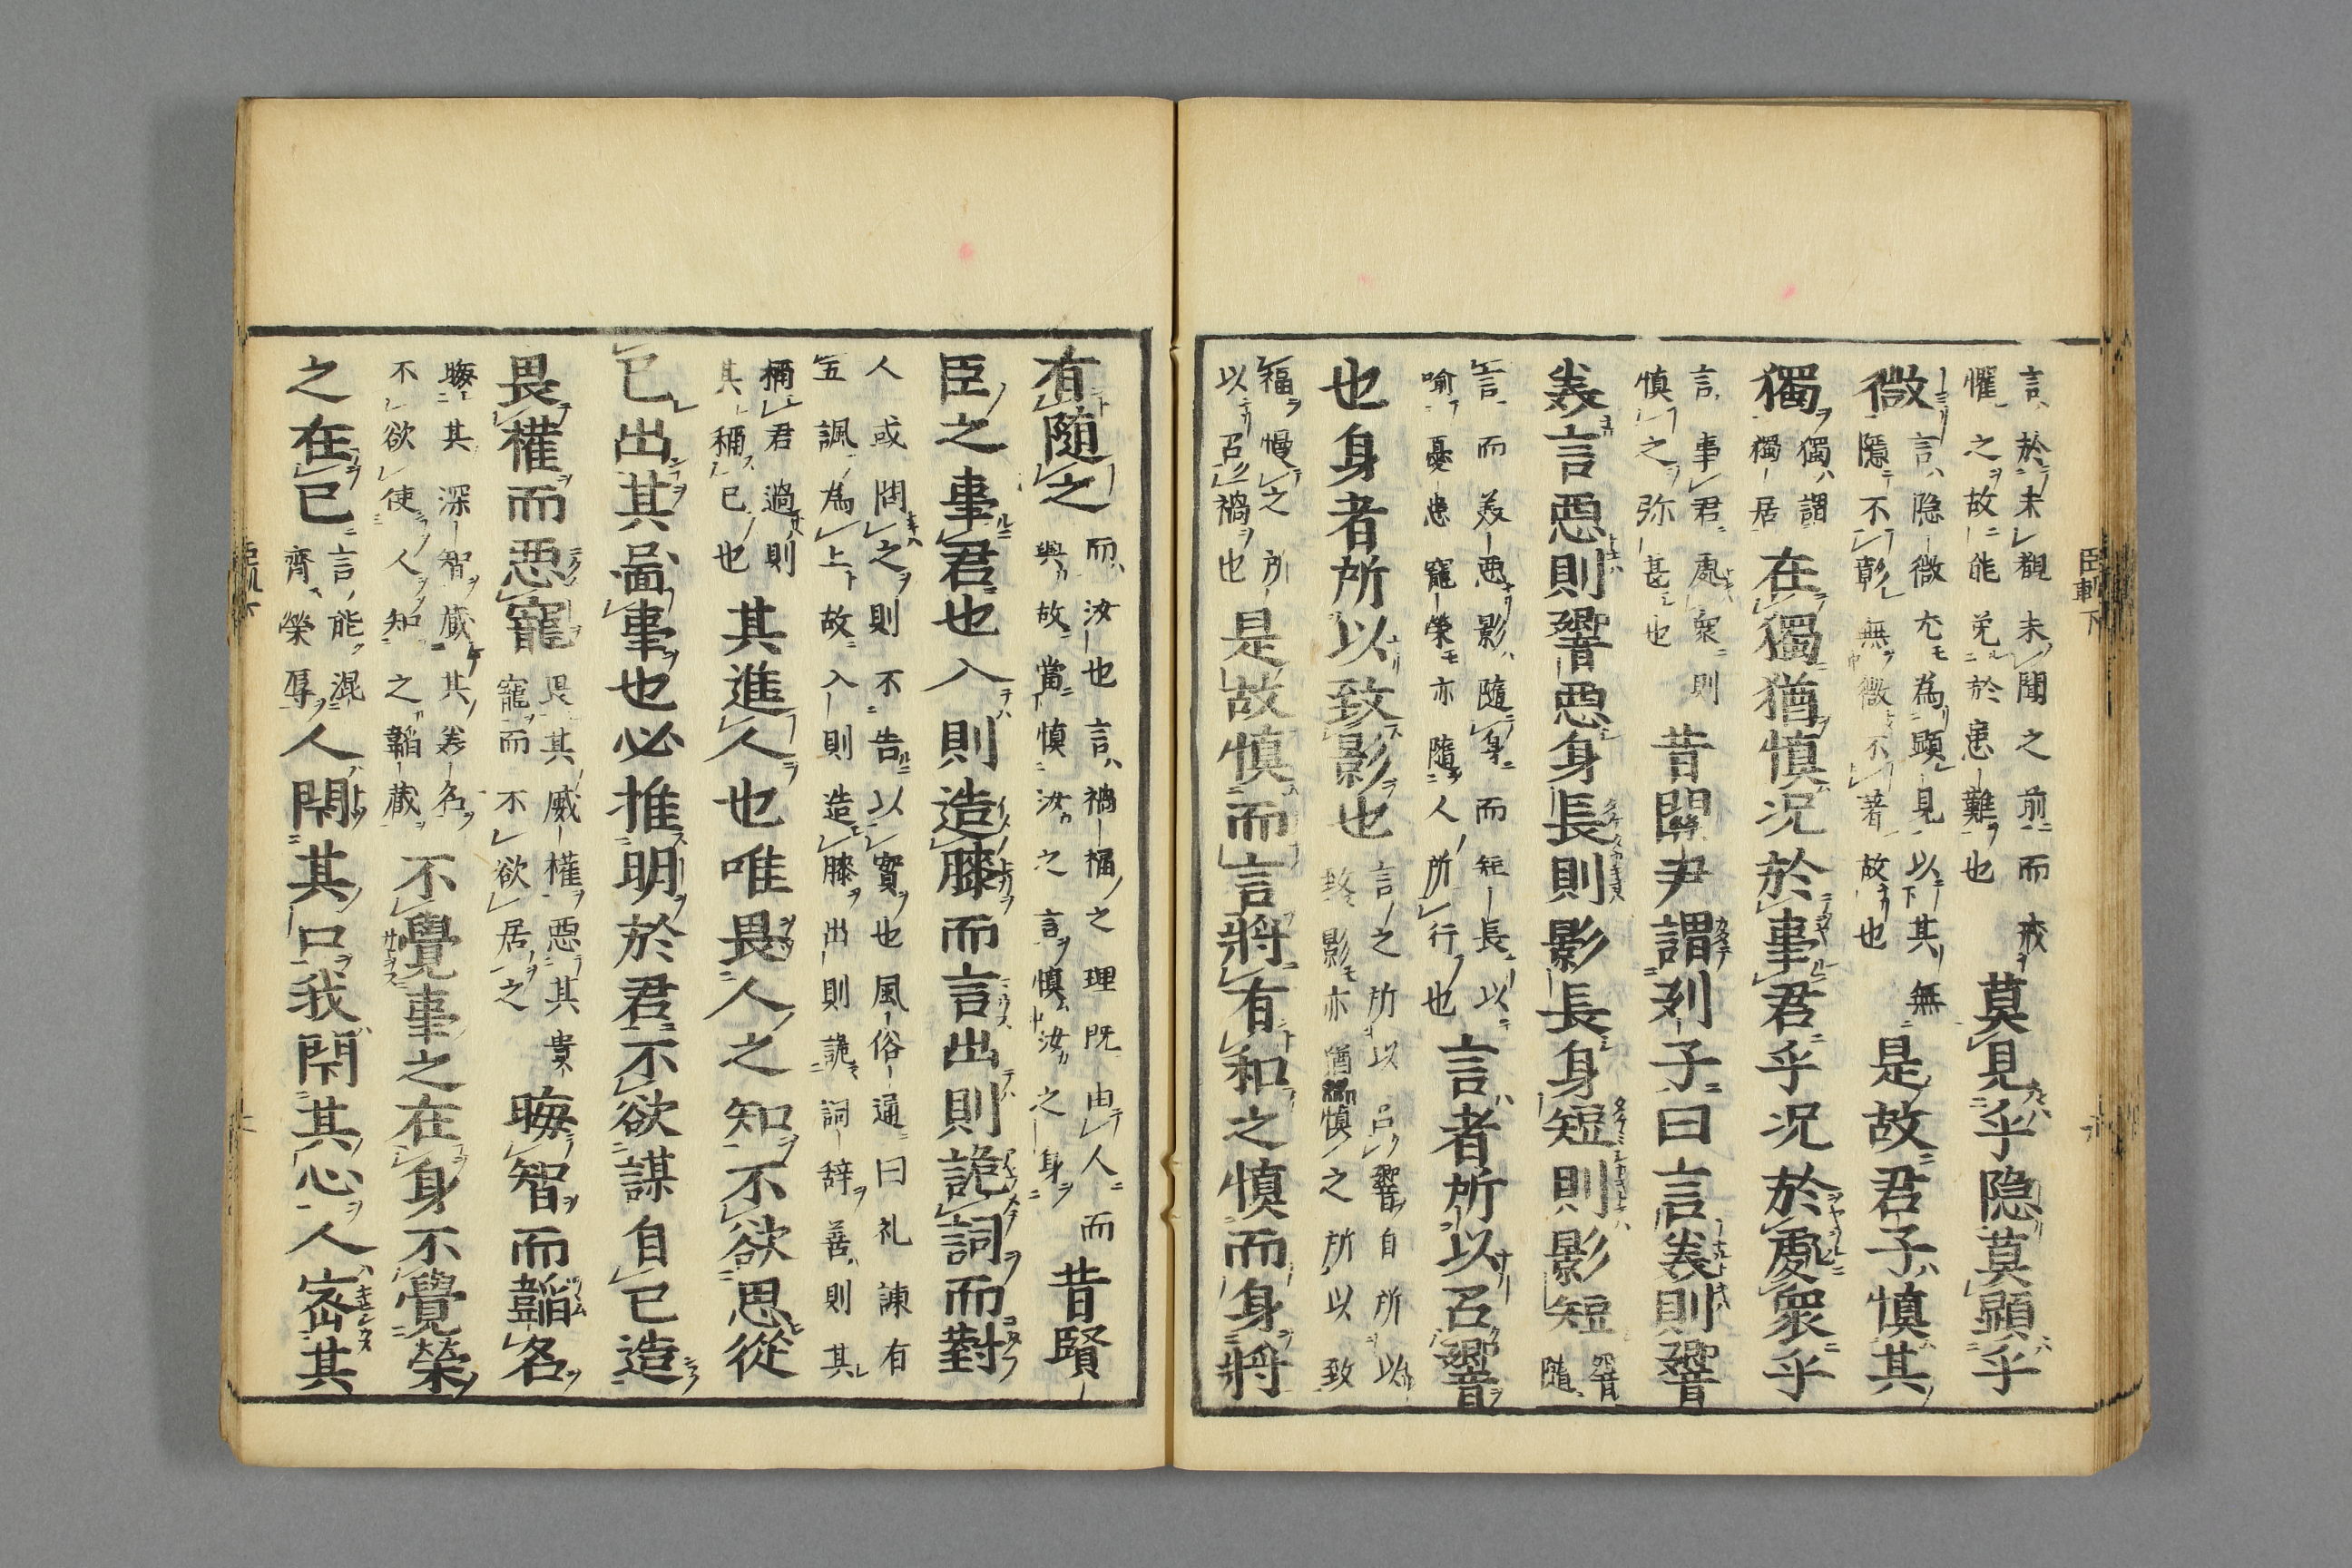 言於未觀未聞之前而戒
懼之故能免於患難也
莫見乎隐莫顕乎
微
言隐微尤為顕見以其無
隱不彰無微不著故也
是故君子慎其
獨
獨謂
獨居
在獨猶慎况於事君乎况於處衆乎
言事君處衆則
慎之弥甚也
昔關尹謂列子曰言美則響
美言惡則響惡身長則影長身短則影短
響
隨
言而美惡影隨身而短長以
喻憂患寵榮亦隨人所行也
言者所以召響
也身者所以致影也
言之所以召響自所以
影亦猶慎之所以致
福慢之所
以召禍也
是故慎而言將有和之慎而身將
臣軌下
有随之
而汝也言禍福之理既由人而
興故當慎汝之言慎汝之身
昔賢
臣之事君也入則造膝而言出則詭詞而對
人或問之則不告以實也風俗通曰礼諌有
五諷為上故入則造膝出則詭詞辞善則其
稱君過則
稱己也
其進人也唯畏人之知不欲思從
已出其啚事也必推明於君不欲謀自已造
畏權而惡寵
畏其威權惡其貴
寵而不欲居之
晦智而韜名
晦其深智蔵其美名
不欲使人知之韜蔵
不覺事之在身不覺榮
之在已
言能混
齊榮辱
人閇其口我閇其心人宻其